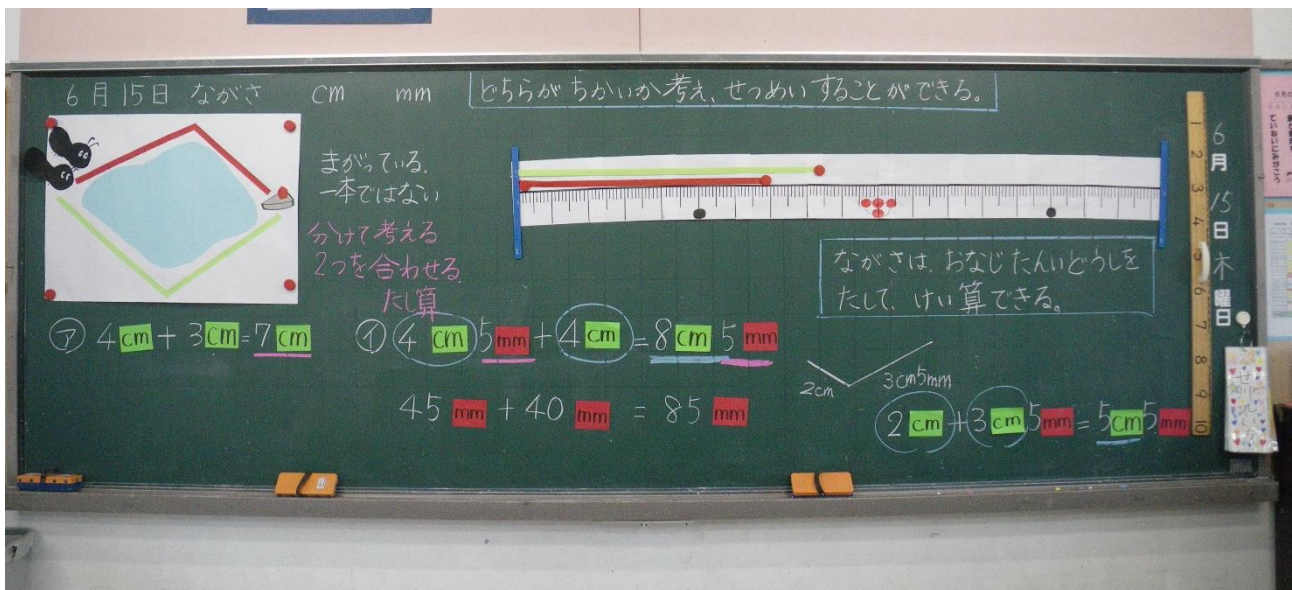 6月15日 ながさ cm mm
どちらがちかいか考え、せつめいすることができる。
まがっている
一本ではない
分けて考える
2つを合わせる
たし算
ながさは、おなじたんいどうしを
たして、けい算できる。
㋐ 4cm + 3cm = 7cm
㋑ 4cm5mm + 4cm = 8cm5mm
45mm + 40mm = 85mm
2cm 3cm5mm
2cm + 3cm5mm = 5cm5mm
1
2
3
4
5
6
7
8
9
10
6月15日木曜日